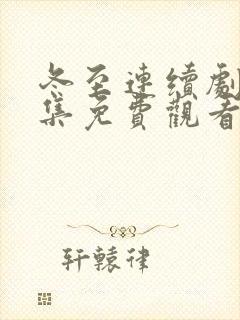 冬至連續劇
集免費觀看
轩轅律